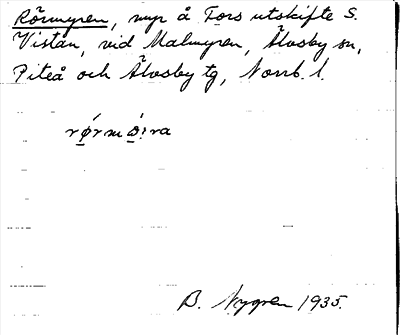 Rörmyren, myr å Fors utskifte S.
Vistån, vid Malmyren, Älvsby sn,
Piteå och Älvsby tg, Norrb. l.
B. Nygren 1935.